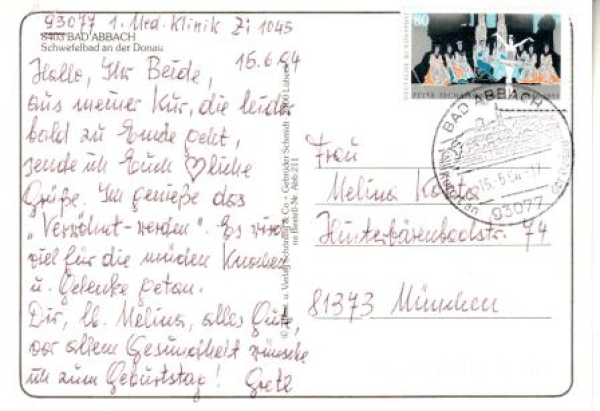 93077 1. Med. Klinik Zi 1045
8403 BAD ABBACH
Schwefelbad an der Donau
15.6.94
Hallo, Ihr Beide,
aus meiner Kur, die leider
bald zu Ende geht,
sende ich Euch ♡liche
Grüße. Ich genieße das
"Verwöhnt-werden". Es wird
viel für die müden Knochen
u. Gelenke getan.
Dir, lb. Melina, alles Gute,
vor allem Gesundheit wünsche
ich zum Geburtstag! Grete
Verlag Schöning & Co + Gebrüder Schmidt
Bestell-Nr. Abb 211
80
DEUTSCHE BUNDESPOST
BAD ABBACH
15.-6.94-17
93077
Frau
Melina
Hinterbärenbadstr. 74
81373 München